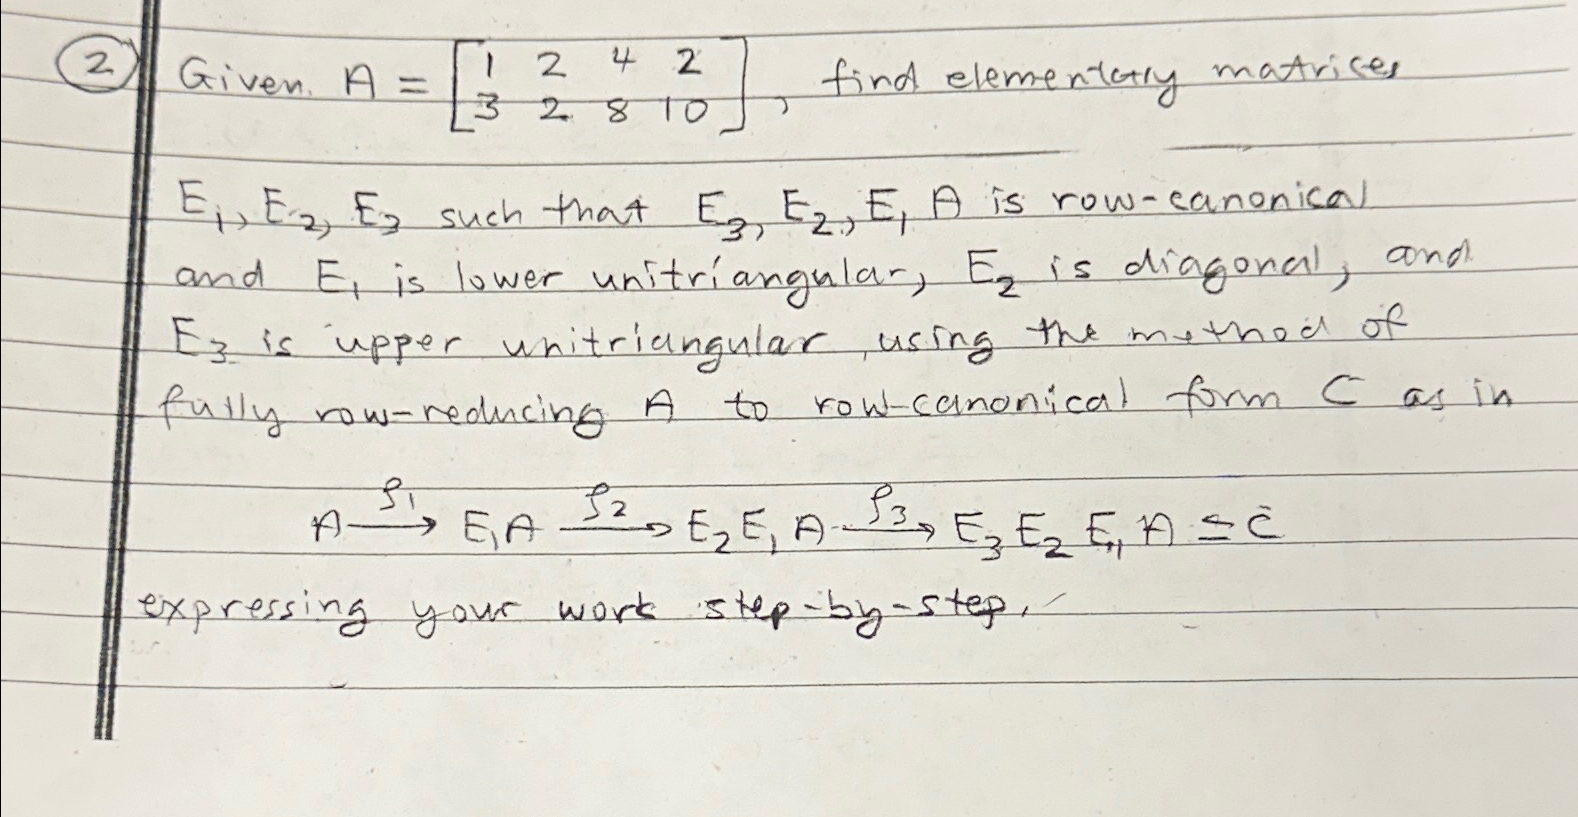 ② Given A = [1 2 4 2
3 2 8 10], find elementary matrices
E₁, E₂, E₃ such that E₃, E₂, E₁ A is row-canonical
and E₁ is lower unitriangular, E₂ is diagonal, and
E₃ is upper unitriangular, using the method of
fully row-reducing A to row-canonical form C as in
A →ρ₁ E₁A →ρ₂ E₂E₁A →ρ₃ E₃E₂E₁A = C
expressing your work step-by-step.